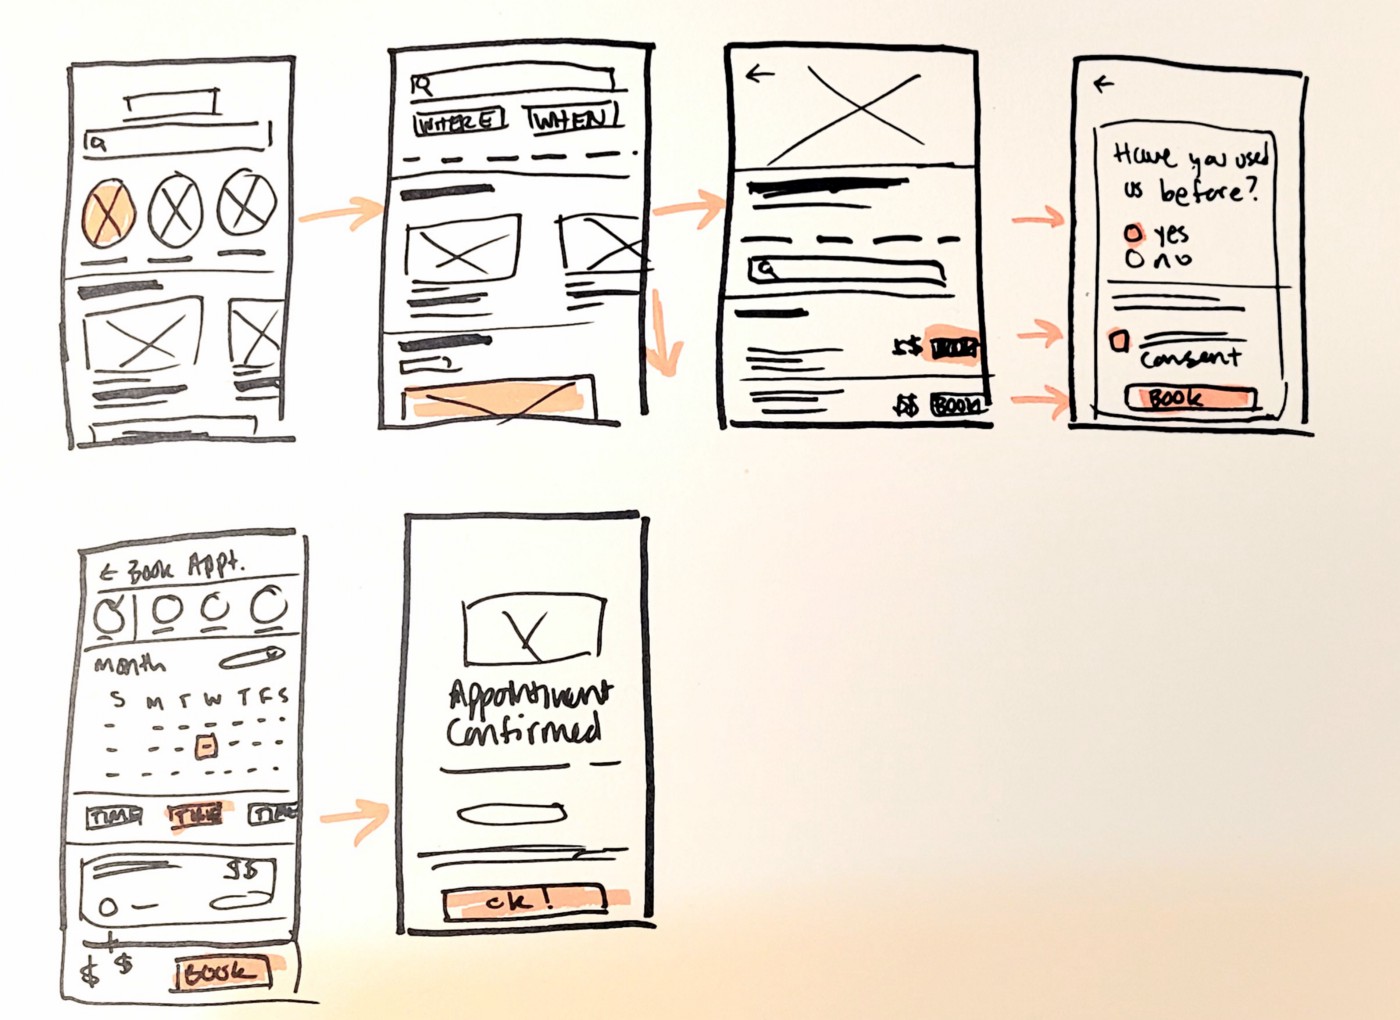 WHERE WHEN
$$ BOOK
$$ BOOK
←
Have you used
us before?
yes
no
consent
BOOK
← BOOK Appt.
Month
S M T W T F S
TIME TIME TIME
$$
$ $ BOOK
Appointment
Confirmed
ok!